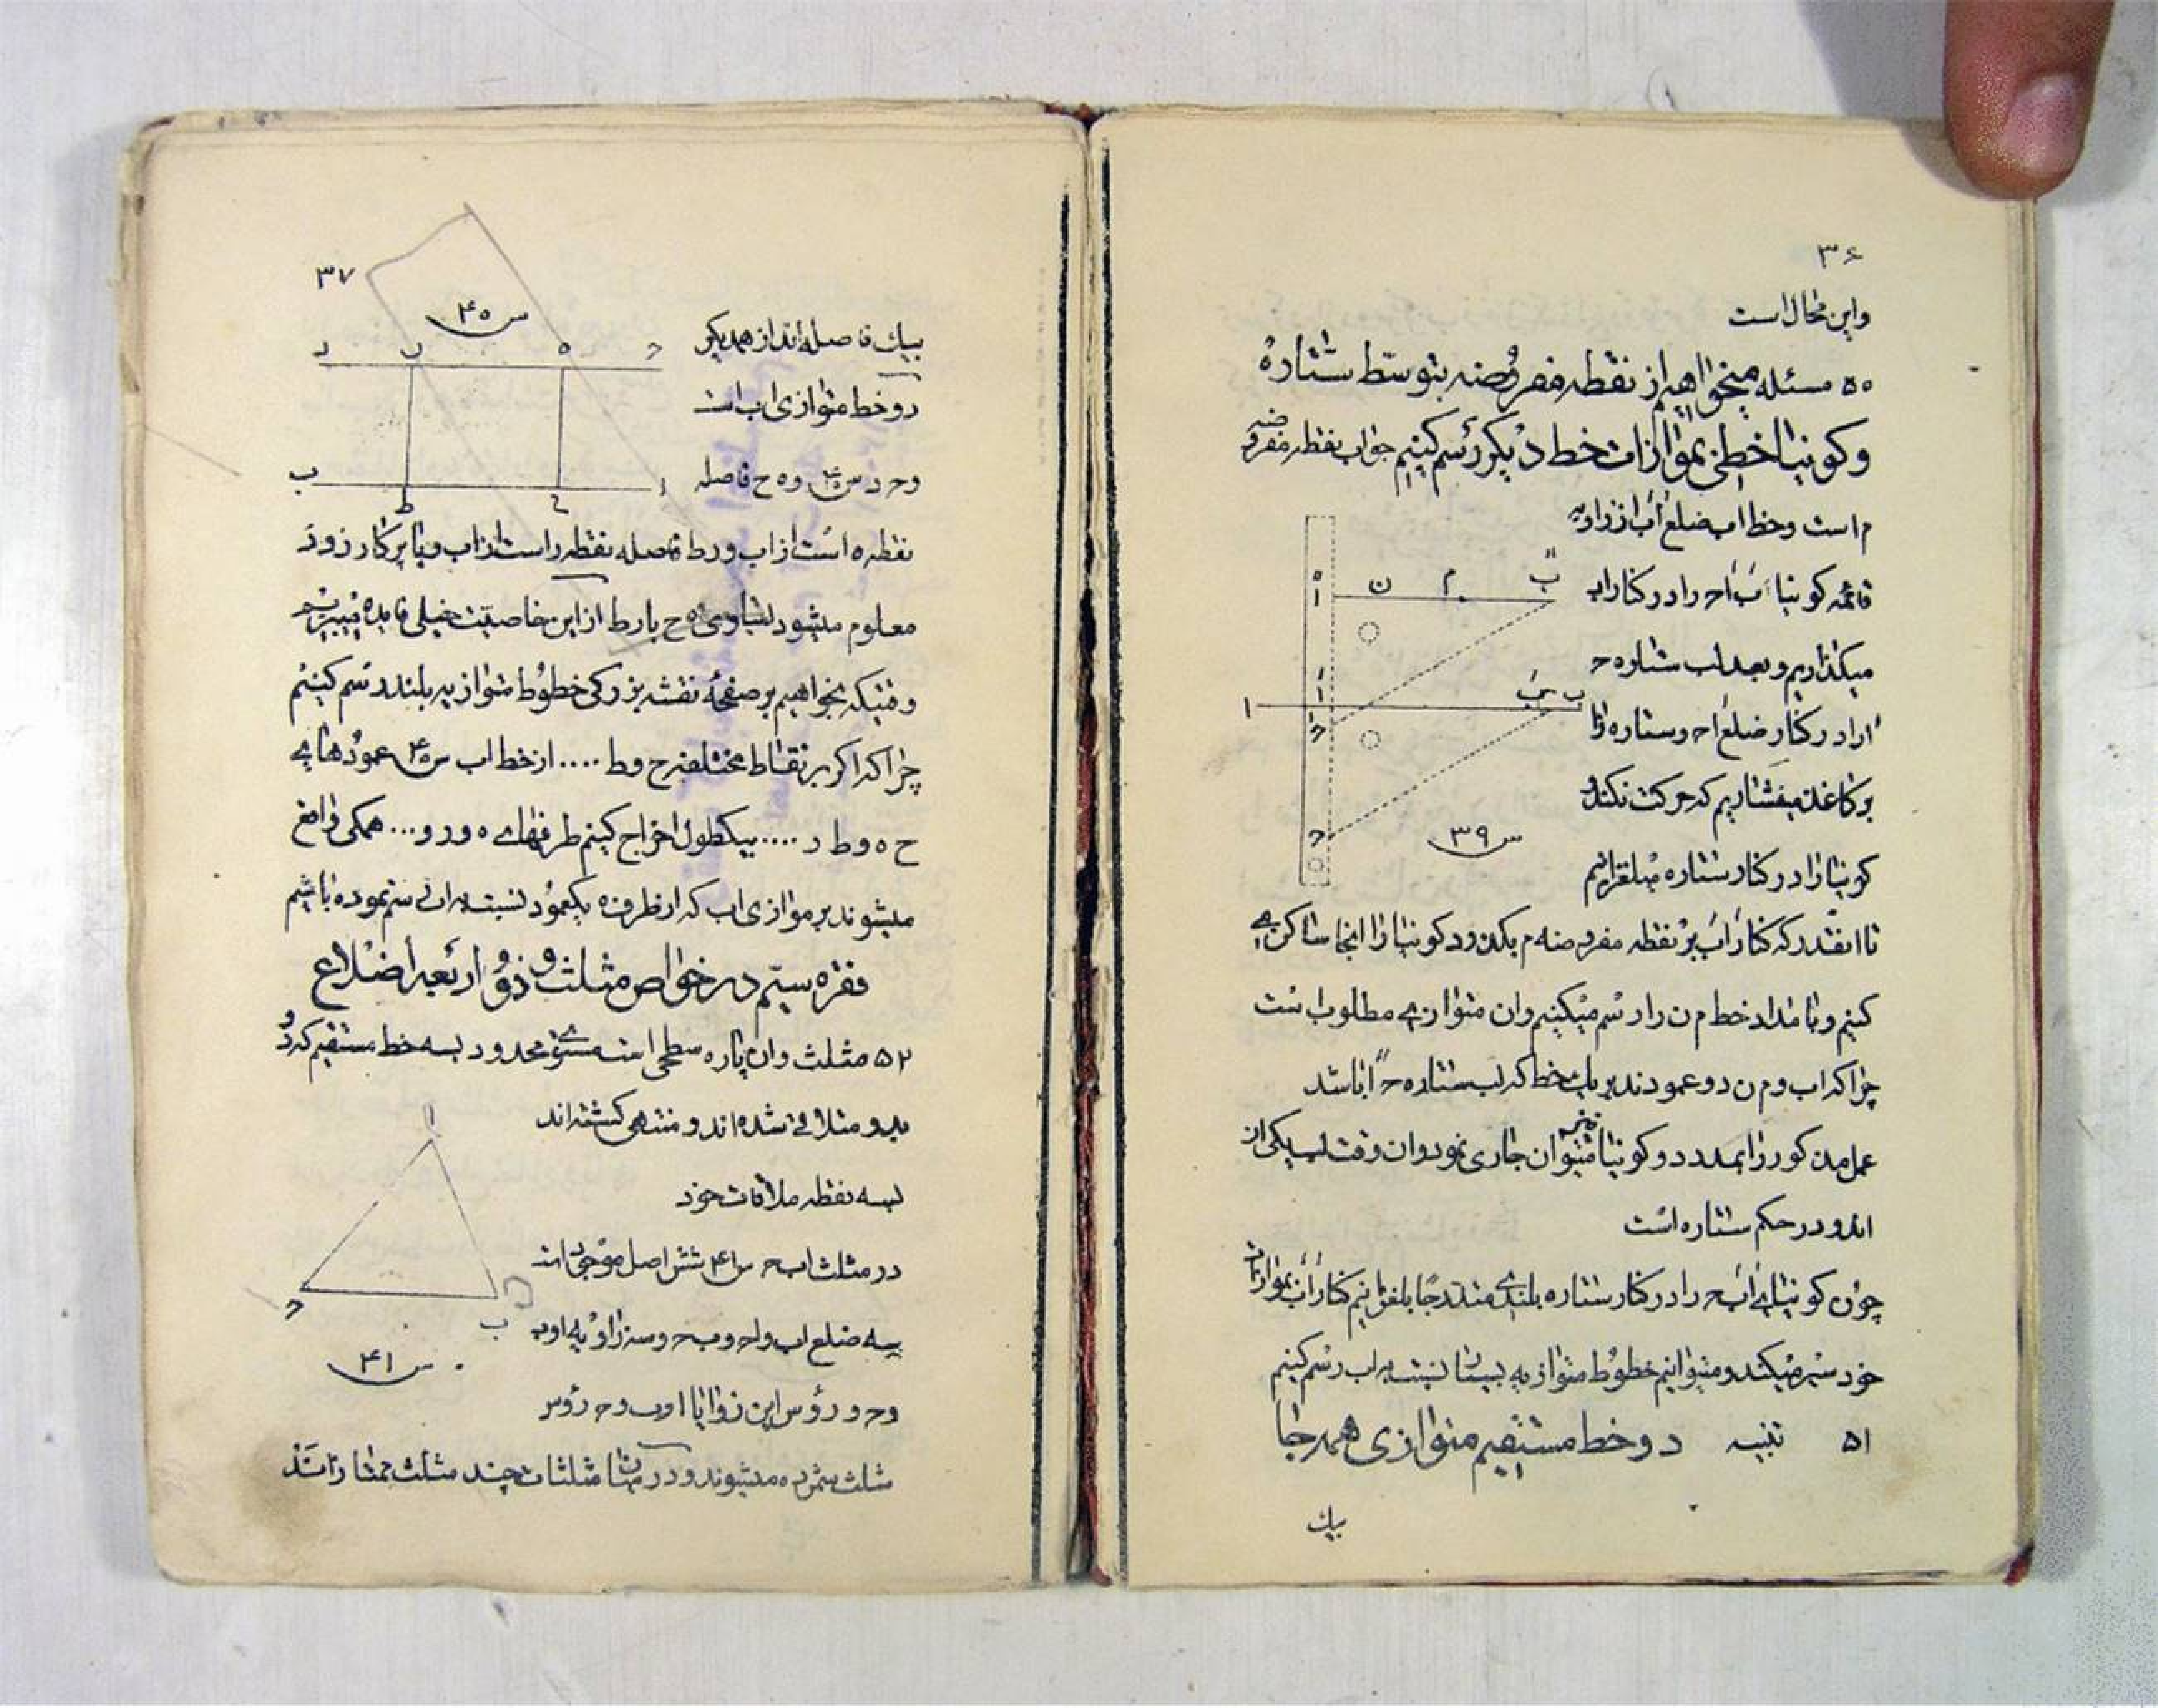 ۳۶
واین محال است
۵۰ مسئله میخواهیم از نقطه مفروضه بتوسّط ستاره
وکونیا خطی بموازات خط دیگر رسم کنیم جواب نقطه مفروضه
م است وخط اب ضلع اَبَ از زاویه
قائمه کونیا بَ اَ حَ را در کنار اب
میکذاریم وبعد لب ستاره ح
را در کنار ضلع اح وستاره را
بر کاغذ میفشاریم که حرکت نکند و
کونیا را در کنار ستاره میلغزانیم
تا انقدر که کنار اَبَ بر نقطه مفروضه م بکذرد و کونیا را انجا ساکن
کنیم وبامداد خط م ن را رسم میکنیم وان متوازی مطلوب است
چرا که اب و م ن دو عمودند بر یک خط که لب ستاره ح ا باشد
عمل مذکور را بمدد دو کونیا نیز میتوان جاری نمود وان وقت یکی از
اندو در حکم ستاره است
چون کونیای اَبَ حَ را در کنار ستاره بلندی متدرجًا بلغزانیم کنار اَبَ بموازات
خود سیر میکند ومیتوانیم خطوط متوازیه بسیار نسبت به اب رسم کنیم
۵۱ تنبیه دو خط مستقیم متوازی همه جا
بیک
۳۷
س ۴۰
د ر ه ح
ب ط ح ا
بیک فاصله‌اند از همدیکر
دو خط متوازی اب است
وح د س ۴۰ و ه ح فاصله
نقطه ه است از اب و ر ط فاصله نقطه ر است از اب وبا پرکار زود
معلوم میشود تساوی ه ح با ر ط از این خاصیّت خیلی فایده میبریم
وقتیکه بخواهیم بر صفحهٔ نقشه بزرکی خطوط متوازیه بلند رسم کنیم
چرا که اکر بر نقاط مختلفه ح و ط .... از خط اب س ۴۰ عمودهای
ح ه و ط ر .... بیکطول اخراج کنیم طرفهای ه و ر و ... همکی واقع
میشوند بر موازی اب که از طرف ه یکعمود نسبت به ان رسم نموده باشیم
فقره سیّم در خواص مثلث و ذو اربعه اضلاع
۵۲ مثلث وان پاره سطحی است مستوی محدود بسه خط مستقیم که دو
بدو متلاقی شده‌اند و منتهی کشته‌اند
بسه نقطه ملاقات خود
در مثلث اب ح س ۴۱ شش اصل موجود است
سه ضلع اب واح وب ح وسه زاویه ا وب
وح و رؤس این زوایا ا وب وح رؤس
مثلث شمرده میشوند و در میان مثلثات چند مثلث ممتازانند
ا
ح
ب
س ۴۱
س ۳۹